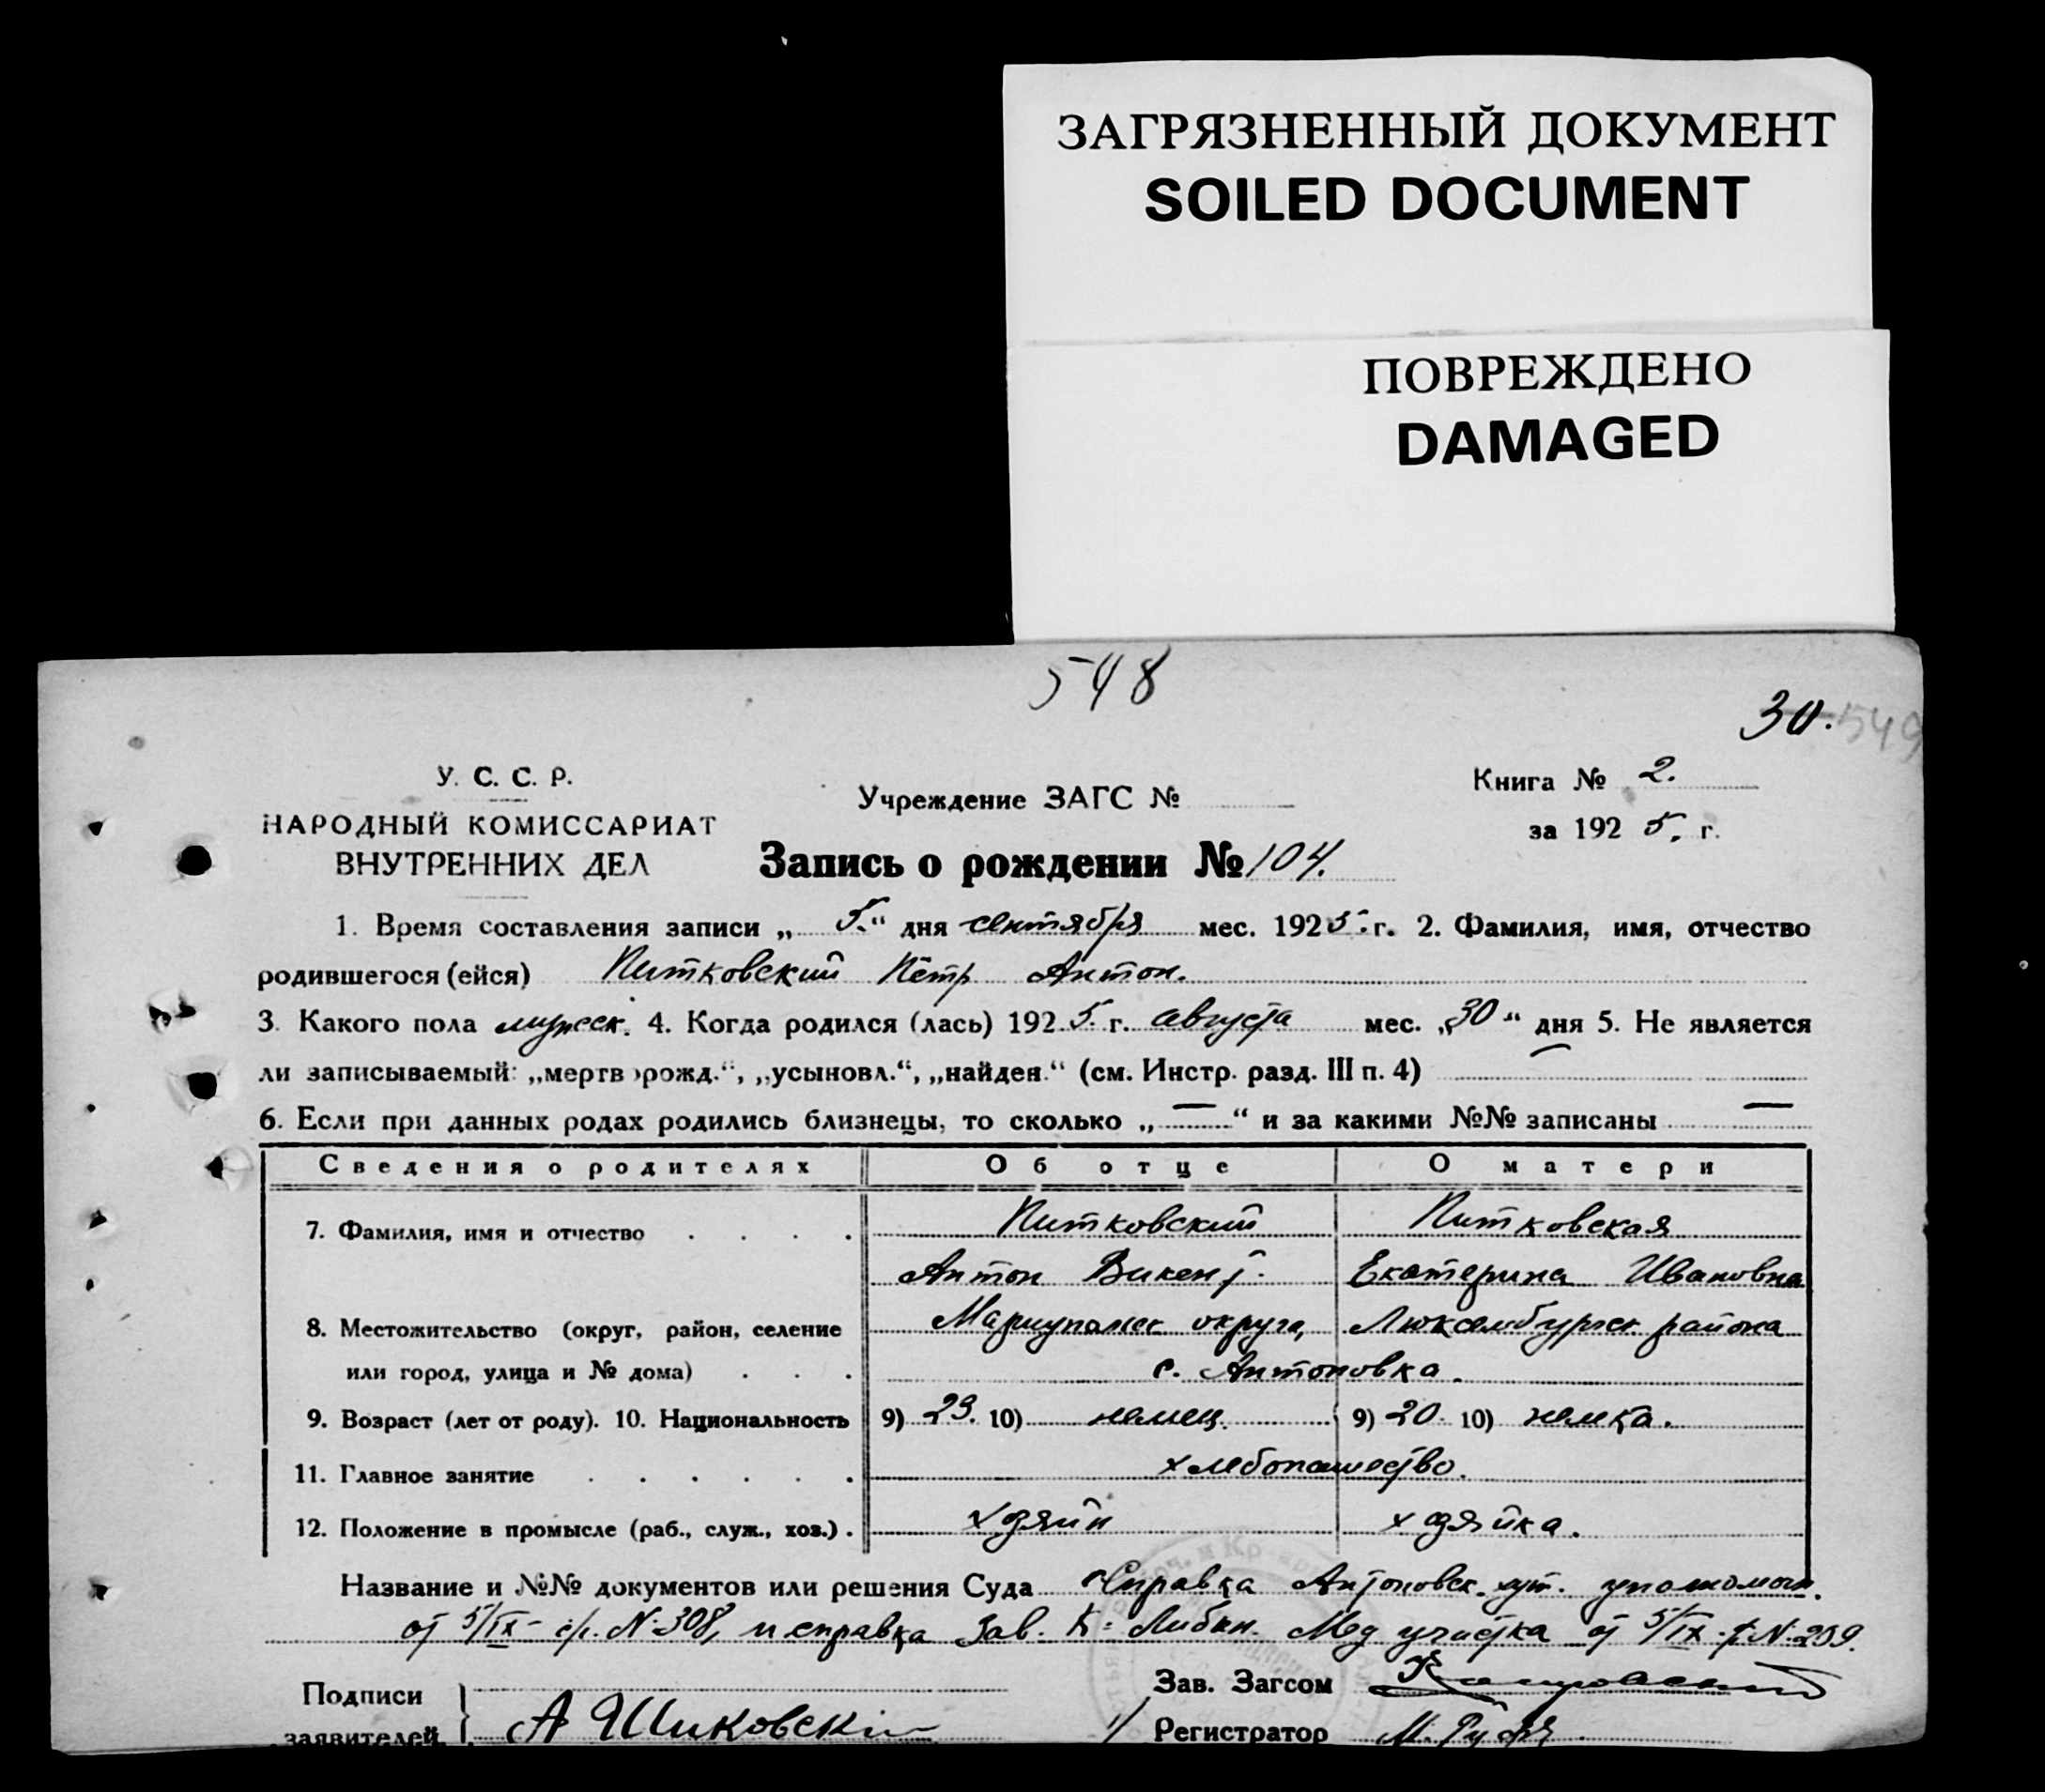 ЗАГРЯЗНЕННЫЙ ДОКУМЕНТ
SOILED DOCUMENT
ПОВРЕЖДЕНО
DAMAGED
548
30. 549
У. С. С. Р.
НАРОДНЫЙ КОМИССАРИАТ
ВНУТРЕННИХ ДЕЛ
Учреждение ЗАГС №
Книга № 2.
за 192 5. г.
Запись о рождении № 104.
1. Время составления записи „ 5. “ дня сентября мес. 1925. г. 2. Фамилия, имя, отчество
родившегося (ейся) Питковский Пётр Антон.
3. Какого пола мужеск. 4. Когда родился (лась) 192 5. г. августа мес. „30“ дня 5. Не является
ли записываемый: „мертворожд.“, „усыновл.“, „найден.“ (см. Инстр. разд. III п. 4) —
6. Если при данных родах родились близнецы, то сколько „ — “ и за какими №№ записаны —
Сведения о родителях Об отце О матери
7. Фамилия, имя и отчество . . . . Питковский Питковская
Антон Викент. Екатерина Ивановна
8. Местожительство (округ, район, селение Мариупольск округа, Люксембургск района
или город, улица и № дома) . . . с. Антоновка.
9. Возраст (лет от роду). 10. Национальность 9) 23. 10) немец. 9) 20. 10) немка.
11. Главное занятие . . . . . . хлебопашество.
12. Положение в промысле (раб., служ., хоз.) . хозяин хозяйка.
Название и №№ документов или решения Суда Справка Антоновск. хут. уполномоч.
от 5/IX с/г. N 308, и справка Зав. К= Мед участка от 5/IX N 209.
Подписи
заявителей
А
Зав. Загсом
Регистратор М.